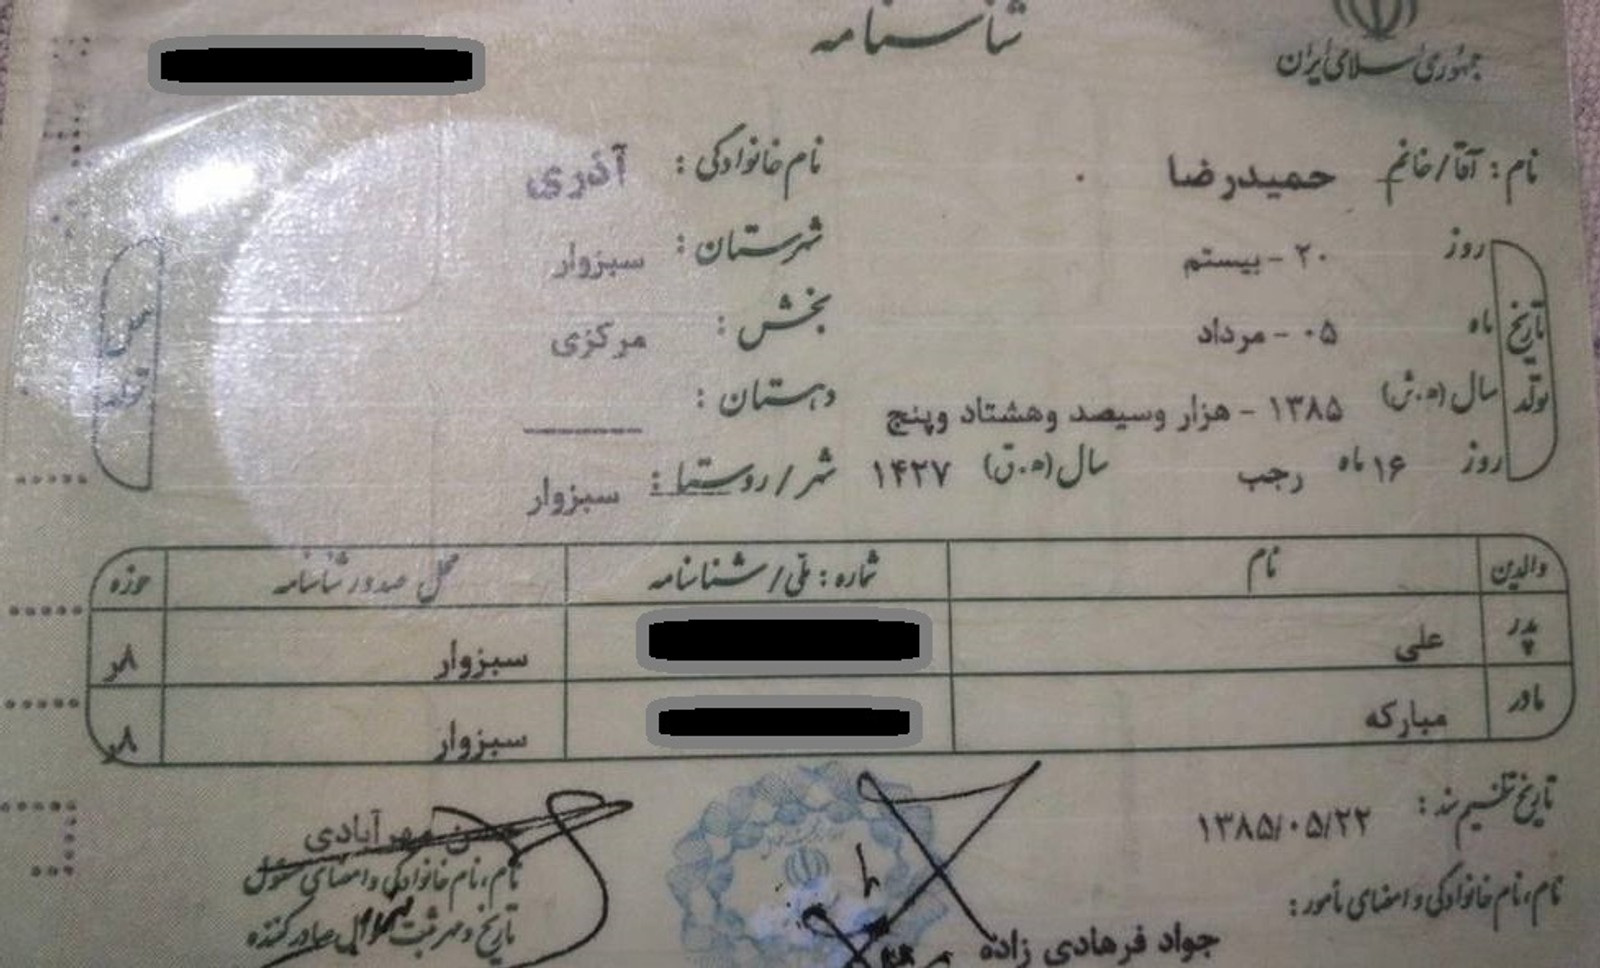 شناسنامه
جمهوری اسلامی ایران
نام: آقا/خانم حمیدرضا
نام خانوادگی: آذری
تاریخ تولد
روز ۲۰ - بیستم
ماه ۰۵ - مرداد
سال (ه.ش) ۱۳۸۵ - هزار وسیصد وهشتاد وپنج
روز ۱۶ ماه رجب سال (ه.ق) ۱۴۲۷
محل تولد
شهرستان: سبزوار
بخش: مرکزی
دهستان:
شهر/روستا: سبزوار
والدین نام شماره: ملی/شناسنامه محل صدور شناسنامه حوزه
پدر علی سبزوار ۸ر
مادر مبارکه سبزوار ۸ر
تاریخ تنظیم سند: ۱۳۸۵/۰۵/۲۲
نام، نام خانوادگی و امضای مأمور:
جواد فرهادی زاده
مهرآبادی
نام، نام خانوادگی و امضای مسئول
تاریخ و مهر ثبت احوال صادرکننده